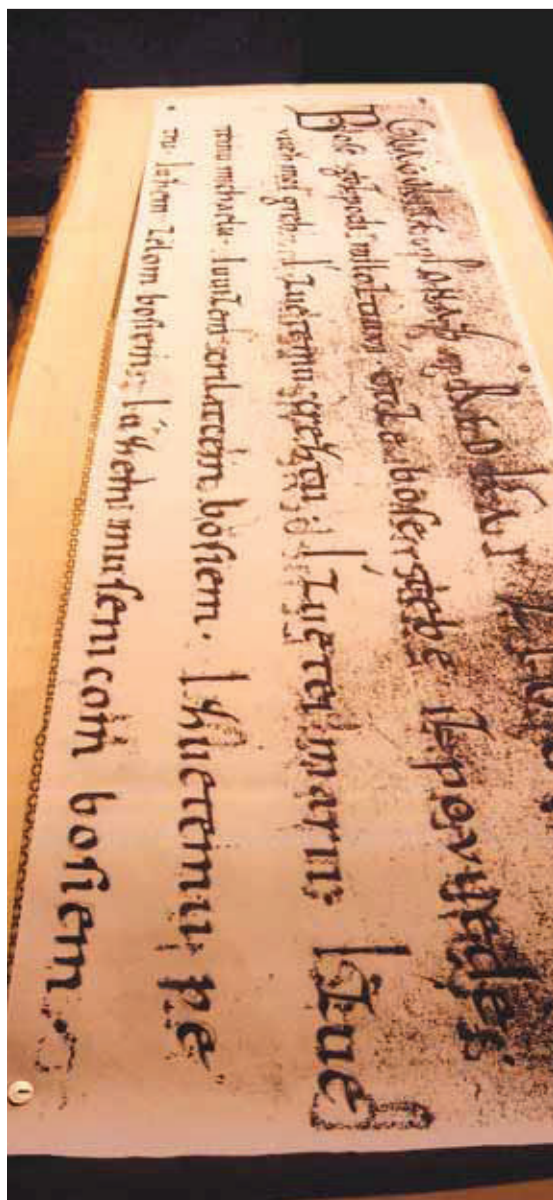 Glagolite ponaz redka
Bose gozpodi miloztiuvi. otze bose. tebe izpovuede.
vuez moi greh. I zuetemu creztu. I zuetei marii. I zue
temu michaelu. I uuizem crilatcem bosiem. I zuetemu pe
tru. I usem zelom bosiem. I usem musenicom bosiem.